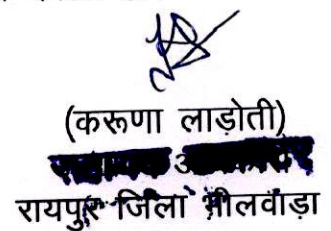 (करूणा लाड़ोती)
रायपुर जिला भीलवाड़ा